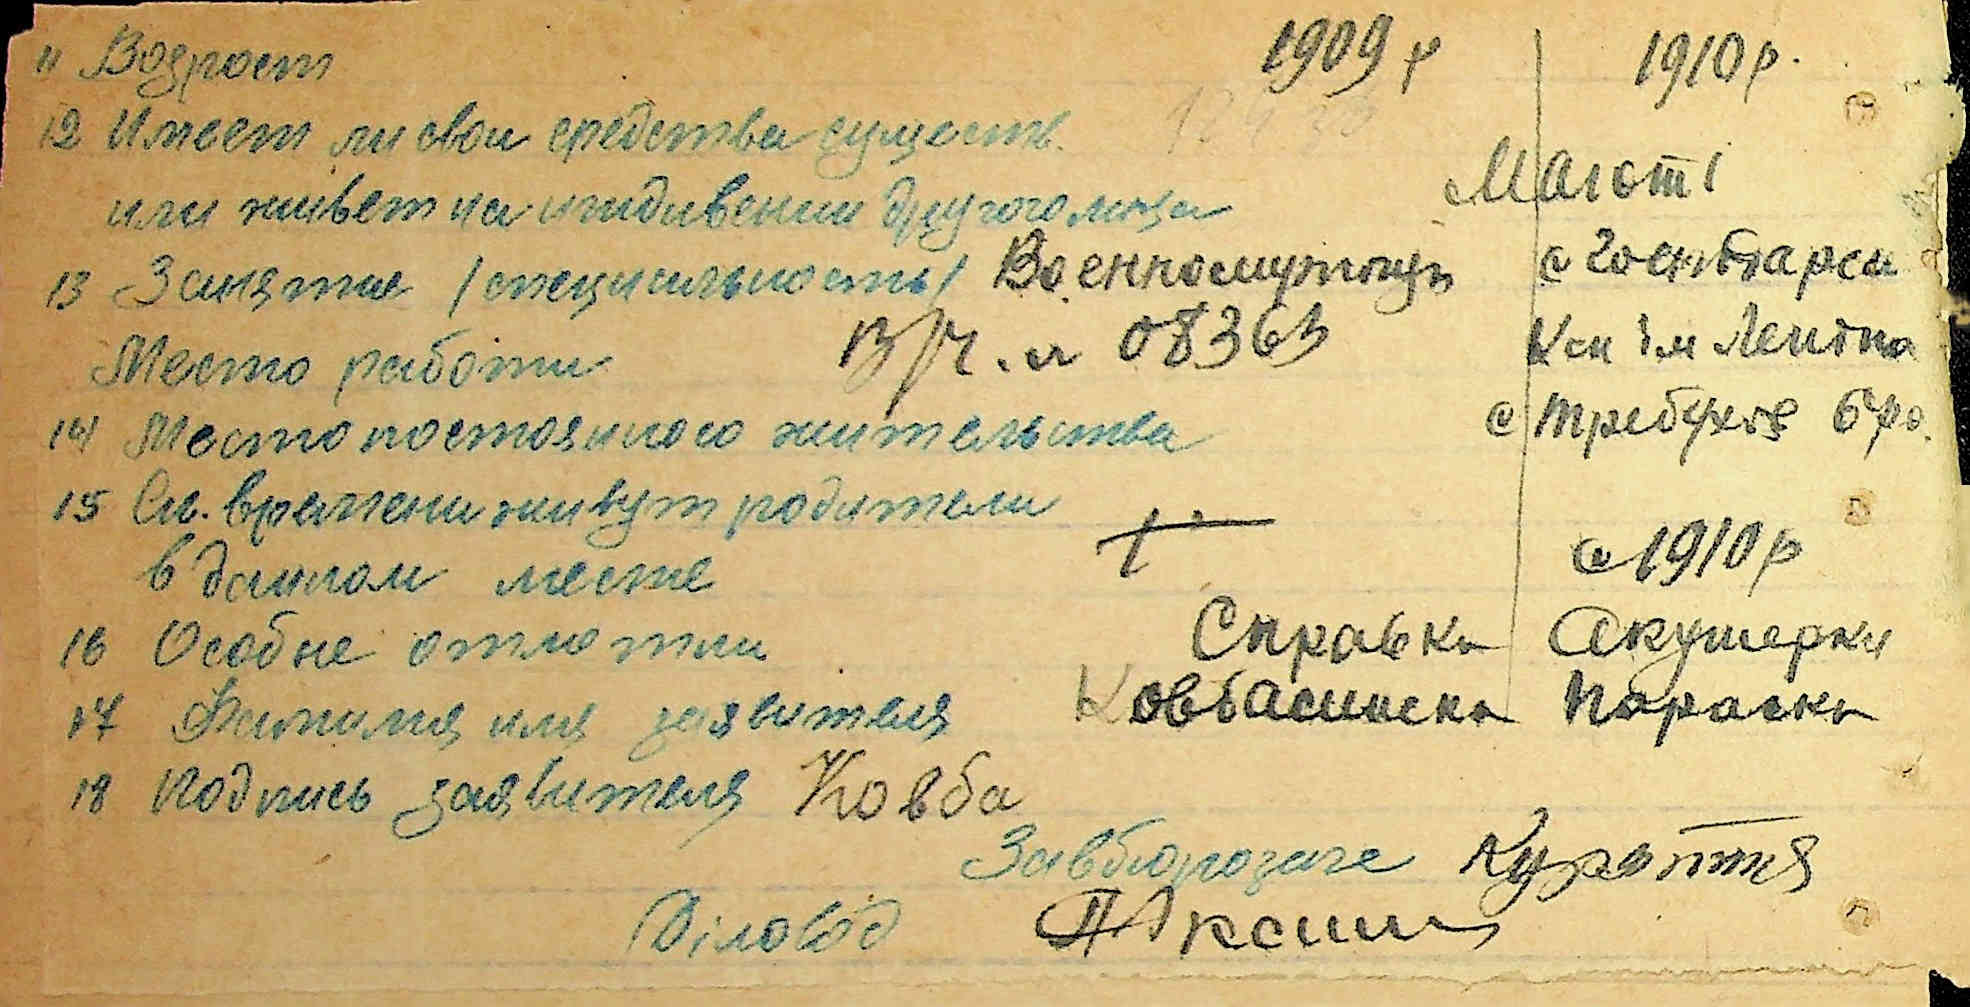 11 Возраст 1909 р 1910 р.
12 Имеет ли свои средства существ.
или живет на иждивении другого лица Мают
13 Занятие /специальность/ Военнослужащ с Господарси
Место работи В/Ч. 08363 Кол Ім Леніна
14 Место постоянного жительства с Требухів бро.
15 Ск. времени живут родители
в данном месте с 1910 р
16 Особые отмотки Справка Акушерки
17 Фамилия имя заявителя Ковбасинска Параска
18 Подпись заявителя Ковба
Завбюрозаге
Діловод